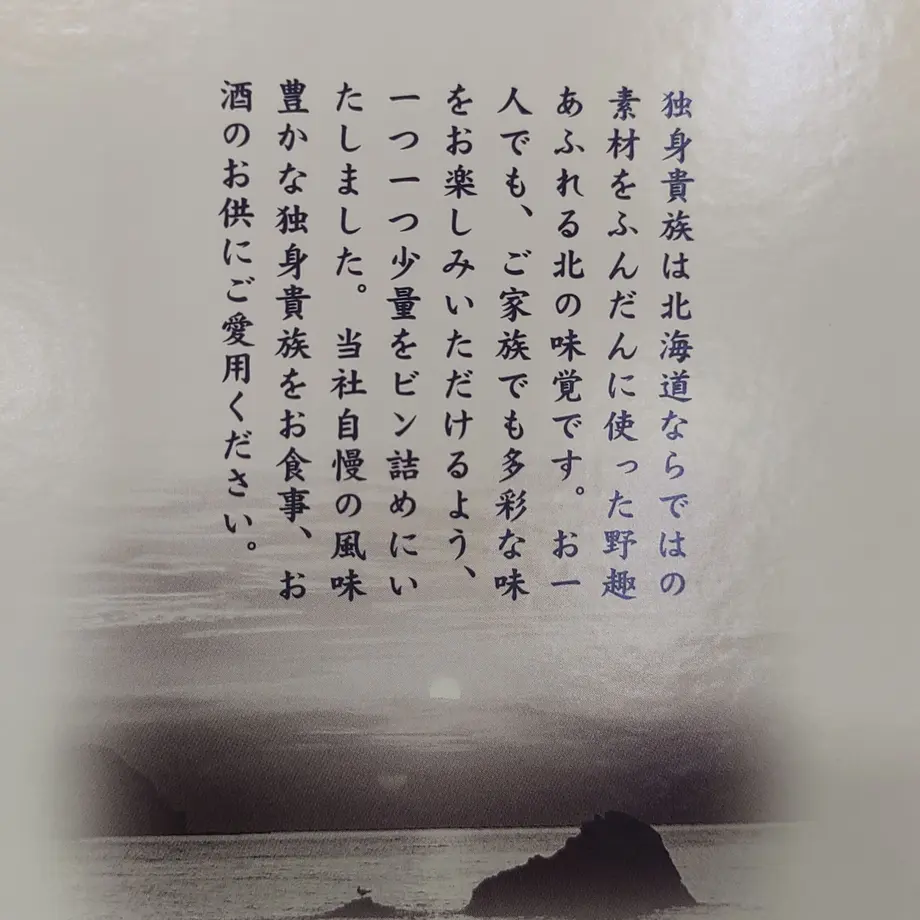 独身貴族は北海道ならではの
素材をふんだんに使った野趣
あふれる北の味覚です。お一
人でも、ご家族でも多彩な味
をお楽しみいただけるよう、
一つ一つ少量をビン詰めにい
たしました。当社自慢の風味
豊かな独身貴族をお食事、お
酒のお供にご愛用ください。